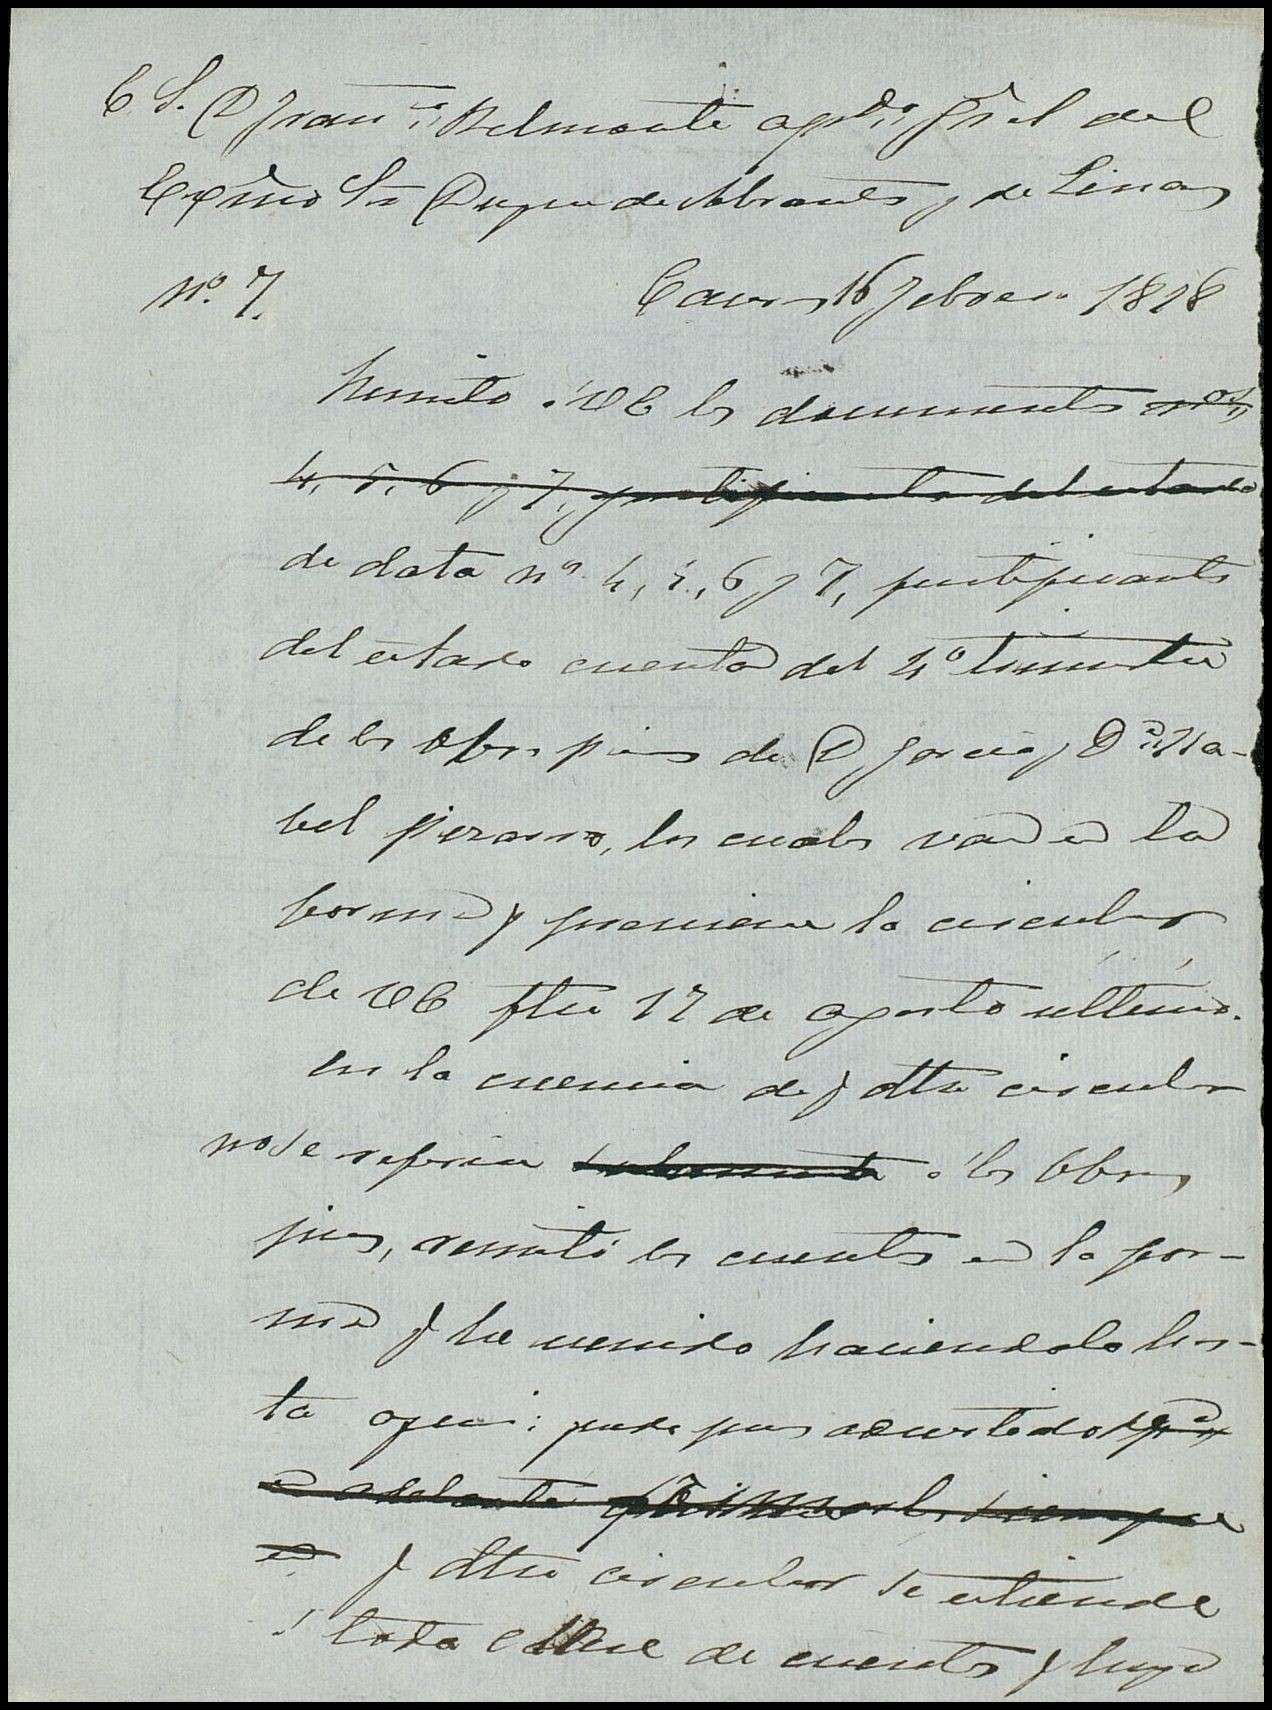 E. S. D. Fran.co Belmonte apdo. Gral del
Exmo Sr Duque de Abrantes y de Linares
no. 7. Caceres 16 Febrero 1878
Remito á VE los documentos nos
4, 5, 6 y 7, justificantes del estado
de data nos. 4, 5, 6 y 7, justificantes
del estado cuenta del 4o trimestre
de las obras pias de D. Garcia y Da. Isa-
bel pizarro, los cuales van en la
forma q previene la circular
de VE fha 17 de agosto ultimo.
En la creencia de q dha circular
no se referia solamente á las Obras
pias, remiti las cuentas en la for-
ma q he venido haciendolo has-
ta aqui; pero pues advertido
en adelante siempre
en q dha circular se estiende
á toda clase de cuentas q haya